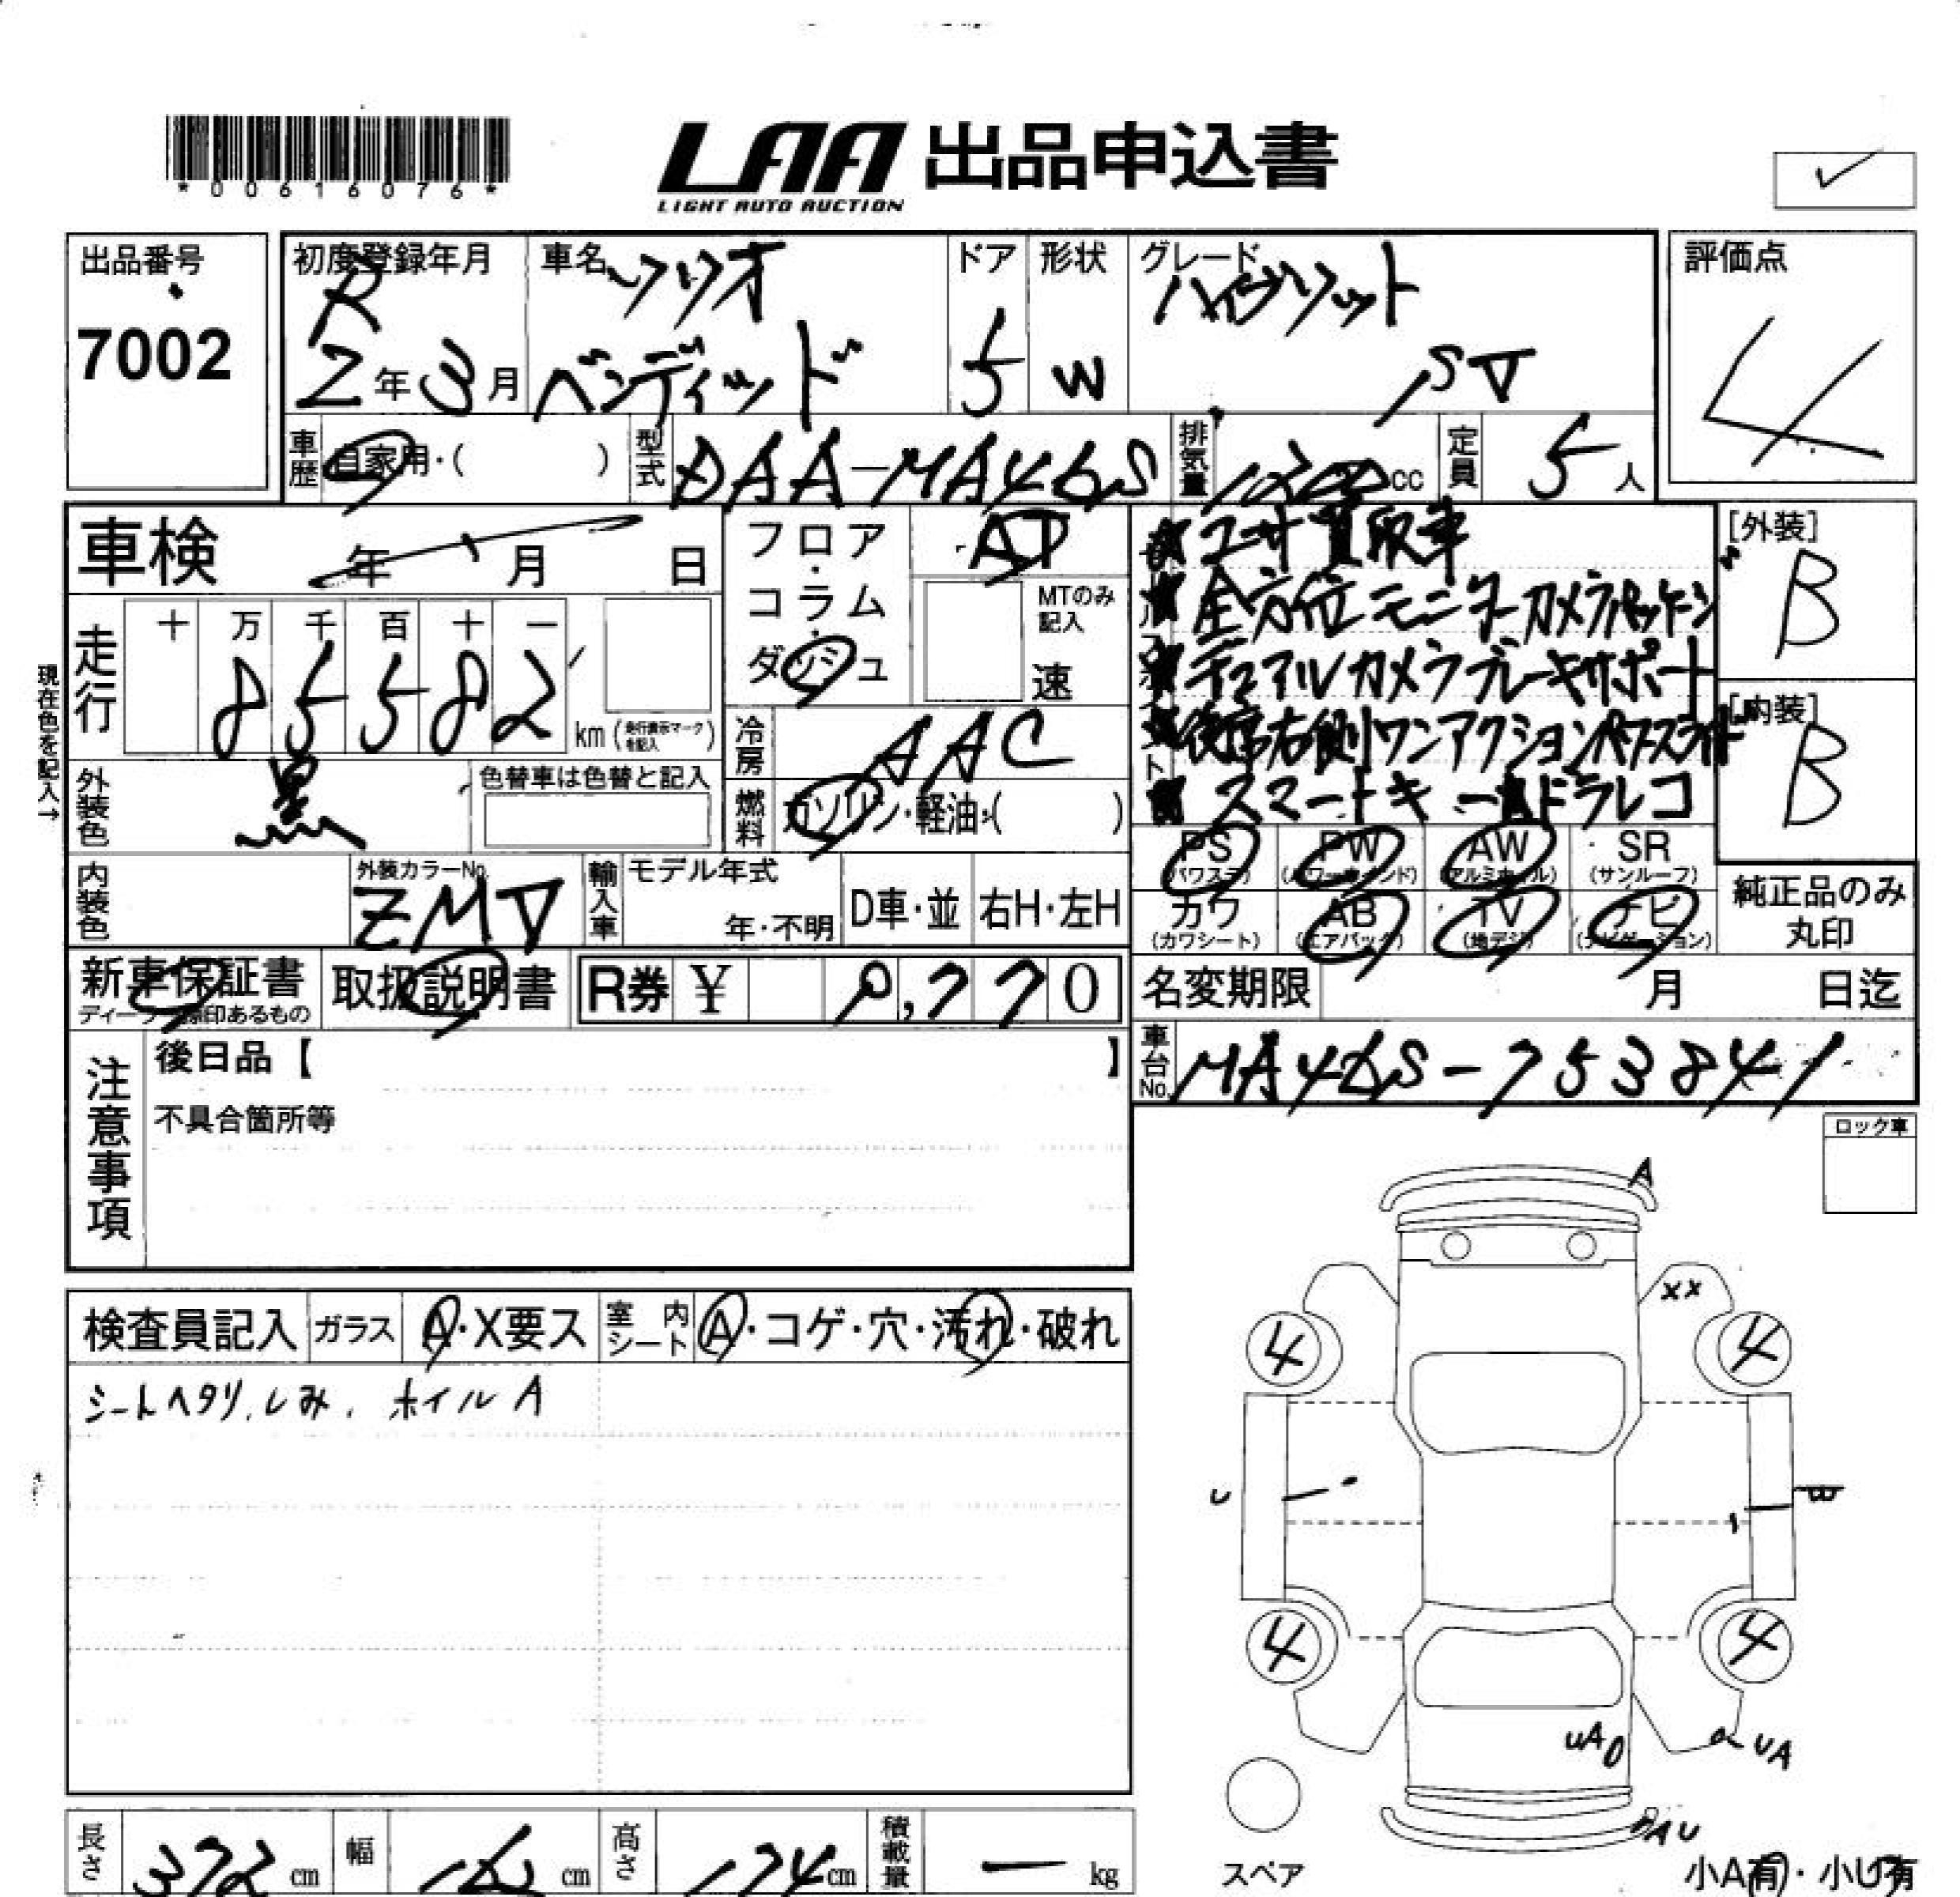 *00616076*
LAA 出品申込書
LIGHT AUTO AUCTION
出品番号
7002
初度登録年月
R
2年3月
車名
ソリオ
ベンディッド
ドア
5
形状
W
グレード
ハイブリット
SV
評価点
4
車歴 自家用・( )
型式 DAA-MA46S
排気量 cc
定員 5人
車検 年 月 日
走行 十 万 千 百 十 一
85582
km (走行表示マークを記入)
現在色を記入→
フロア・コラム・ダッシュ
AT
MTのみ記入
速
冷房 AAC
燃料 ガソリン・軽油・( )
外装色 黒
色替車は色替と記入
内装色
外装カラーNo.
ZMV
輸入車
モデル年式
年・不明
D車・並
右H・左H
セールスポイント
★ユーザ買取車
★全方位モニターカメラパッケージ
★デュアルカメラブレーキサポート
★後席右側ワンアクションパワースライド
★スマートキー ドラレコ
[外装]
B
[内装]
B
PS (パワステ)
PW (パワーウィンド)
AW (アルミホイル)
SR (サンルーフ)
カワ (カワシート)
AB (エアバック)
TV (地デジ)
ナビ (ナビゲーション)
純正品のみ
丸印
新車保証書
ディーラー課印あるもの
取扱説明書
R券 ¥ 9,770
名変期限 月 日迄
車台No. MA46S-753841
注意事項
後日品【 】
不具合箇所等
ロック車
検査員記入
ガラス A・X要ス
室内シート A・コゲ・穴・汚れ・破れ
シートヘタリ、しみ、ホイルA
A
XX
4
4
U
W
4
4
UA
UA
AU
スペア
小A有・小U有
長さ 372cm
幅 cm
高さ 174cm
積載量 ー kg